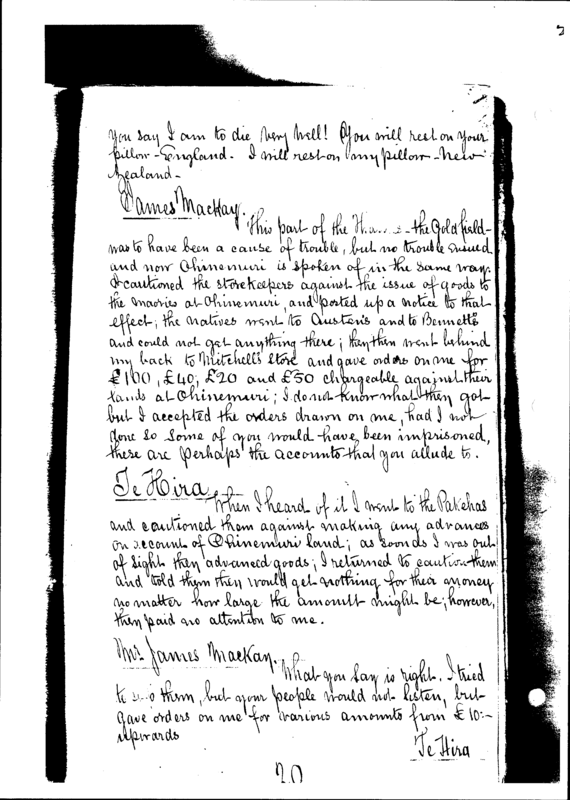 you say I am to die Very Well! You will rest on your
pillow - England. I will rest on my pillow - New
Zealand -
James Mackay.
This part of the the Goldfield -
was to have been a cause of trouble, but no trouble ensued
and now Ohinemuri is spoken of in the same way.
I cautioned the storekeepers against the issue of goods to
the maories at Ohinemuri, and posted up a notice to that
effect; the natives went to Austen's and to Bennett's
and could not get anything there; they then went behind
my back to Mitchell's Store and gave orders on me for
£100, £40, £20 and £50 chargeable against their
lands at Ohinemuri; I do not know what they got
but I accepted the orders drawn on me, had I not
done so some of you would have been imprisoned,
these are perhaps the accounts that you allude to.
Te Hira
When I heard of it I went to the Pakehas
and cautioned them against making any advances
on account of Ohinemuri land; as soon as I was out
of sight they advanced goods; I returned to caution them
and told them they would get nothing for their money
no matter how large the amount might be; however,
they paid no attention to me.
Mr James Mackay.
What you say is right. I tried
to them, but your people would not listen, but
gave orders on me for various amounts from £10:-
upwards
Te Hira
20